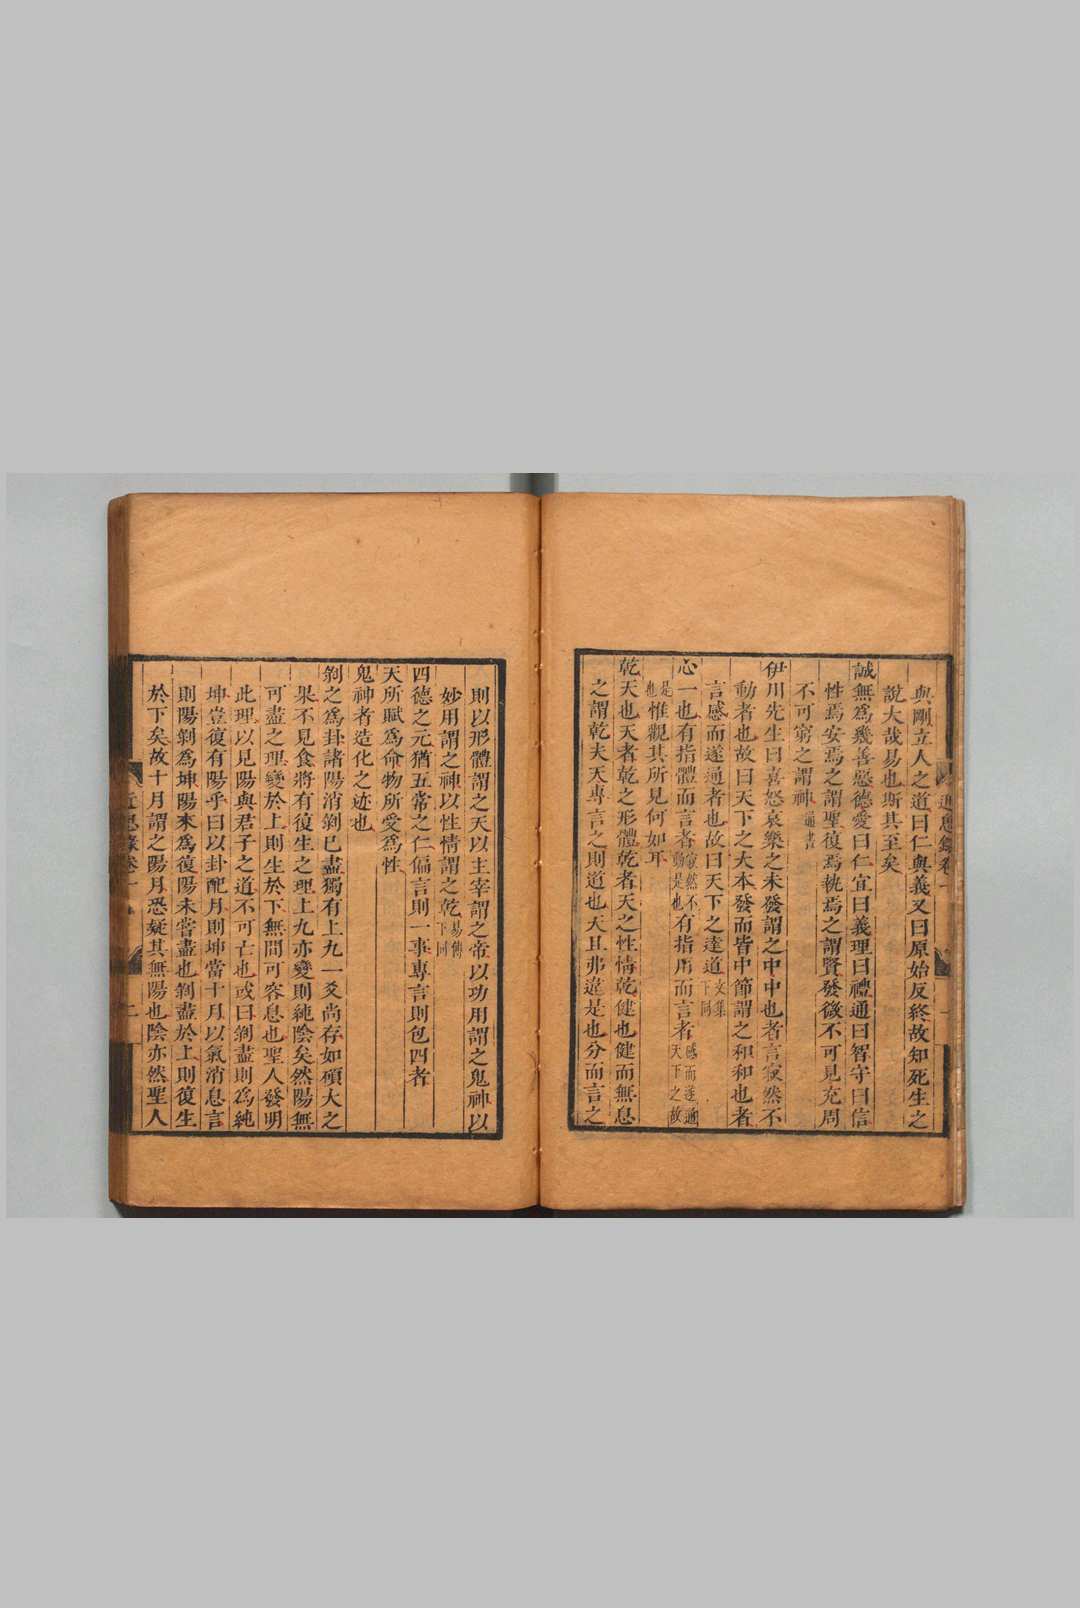 與剛立人之道曰仁與義又曰原始反終故知死生之
說大哉易也斯其至矣
誠無為幾善惡德愛曰仁宜曰義理曰禮通曰智守曰信
性焉安焉之謂聖復焉執焉之謂賢發微不可見充周
不可窮之謂神通書
伊川先生曰喜怒哀樂之未發謂之中中也者言寂然不
動者也故曰天下之大本發而皆中節謂之和和也者
言感而遂通者也故曰天下之達道文集下同
心一也有指體而言者寂然不動是也有指用而言者感而遂通天下之故
是也惟觀其所見何如耳
乾天也天者乾之形體乾者天之性情乾健也健而無息
之謂乾夫天專言之則道也天且弗違是也分而言之
近思錄卷一
則以形體謂之天以主宰謂之帝以功用謂之鬼神以
妙用謂之神以性情謂之乾易傳下同
四德之元猶五常之仁偏言則一事專言則包四者
天所賦爲命物所受爲性
鬼神者造化之迹也
剝之爲卦諸陽消剝已盡獨有上九一爻尚存如碩大之
果不見食將有復生之理上九亦變則純陰矣然陽無
可盡之理變於上則生於下無間可容息也聖人發明
此理以見陽與君子之道不可亡也或曰剝盡則爲純
坤豈復有陽乎曰以卦配月則坤當十月以氣消息言
則陽剝爲坤陽來爲復陽未嘗盡也剝盡於上則復生
於下矣故十月謂之陽月恐疑其無陽也陰亦然聖人
近思錄卷一
二